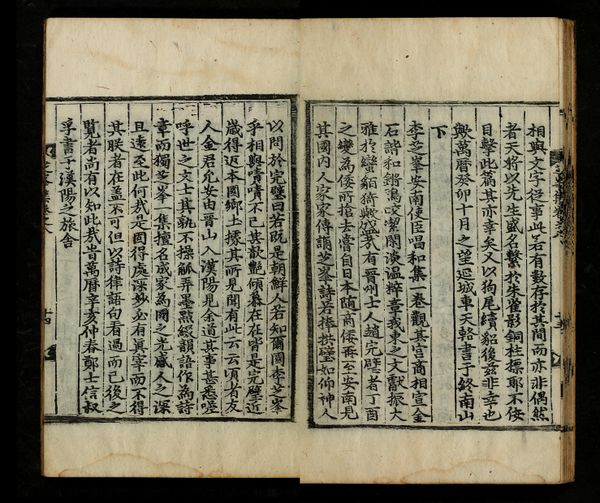 相與文字從事此若有數存於其間而亦非偶然
者天將以先生盛名繫於朱崖影銅柱標耶不佞
目擊此篇其亦幸矣又以狗尾續貂後玆非幸也
歟萬曆癸卯十月之望延城車天輅書于終南山
下
李芝峯安南使臣唱和集一卷觀其宮商相宣金
石諧和鏘鳴皎潔閑淡溫粹章我東之文獻振大
雅於蠻貊猗歟盛哉有晉州士人趙完璧者丁酉
之變爲倭所搶去嘗自日本随商倭再至安南見
其國内人家家傳誦芝峯詩若捧拱璧如仰神人
以問於完璧曰若旣是朝鮮人若知爾國李芝峯
乎相與嘖嘖不已其歆艶傾慕在在皆是完璧近
歲得返本國鄕土據其所見聞有此云云頃者有友
人金君允安由晉山入漢陽見余道其事甚悉嗟
呼世之文士其孰不操觚弄墨點綴韻語作爲詩
章而獨芝峯一集擅名成家爲國之光感人之深
且遠至此何哉是固得處深妙必有眞宰而不得
其朕者在盖不可但以詩律語句看過而已後之
覽者尚有以知此哉旹萬曆辛亥仲春鄭士信叔
孚書于漢陽之旅舍